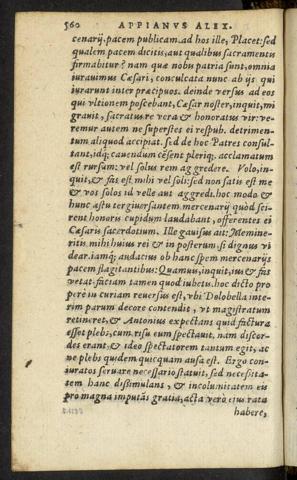 560 APPIANVS ALEX.
cenarij. pacem publicam. ad hos ille, Placet: sed
qualem pacem dicitis, aut qualibus sacramentis
firmabitur? nam quæ nobis patria sunt, omnia
iurauimus Cæsari, conculcata nunc ab ijs qui
iurarunt inter præcipuos. deinde versus ad eos
qui vltionem poscebant, Cæsar noster, inquit, mi
grauit, sacratus re vera & honoratus vir: ve-
remur autem ne superstes ei respub. detrimen-
tum aliquod accipiat. sed de hoc Patres consul-
tant, idq́; cauendum cẽsent pleriq;. acclamatum
est rursum: vel solus rem aggredere. Volo, in-
quit, & fas est mihi vel soli: sed non satis est me
& vos solos id velle aut aggredi. hoc modo &
hunc astu tergiuersantem mercenarij quòd sci-
rent honoris cupidum laudabant, offerentes ei
Cæsaris sacerdotium. Ille gauisus ait: Memine-
ritis mihi huius rei & in posterum, si dignus vi
dear. iamq́; audacius ob hanc spem mercenarijs
pacem flagitantibus: Quamuis, inquit, ius & fas
vetat. faciam tamen quod iubetis. hoc dicto pro
perè in curiam reuersus est, vbi Dolobella inte-
rim parum decore contendit, vt magistratum
retineret, & Antonius expectans quid factura
esset plebs, cum risu eum spectauit, nam discor-
des erant. & ideo spectatorem tantum egit, ac
ne plebs quidem quicquam ausa est. Ergo con-
iuratos seruare necessario statuit, sed necessita-
tem hanc dissimulans, & incolumitatem eis
pro magna imputãs gratia, acta verò eius rata
habere,